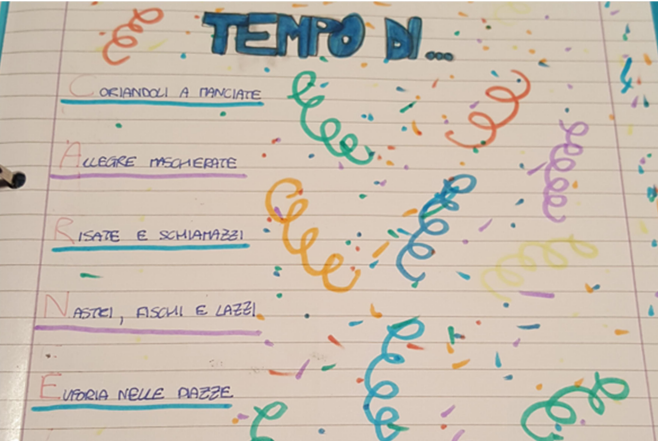 TEMPO DI...
CORIANDOLI A MANCIATE
ALLEGRE MASCHERATE
RISATE E SCHIAMAZZI
NASTRI, FISCHI E LAZZI
EUFORIA NELLE PIAZZE